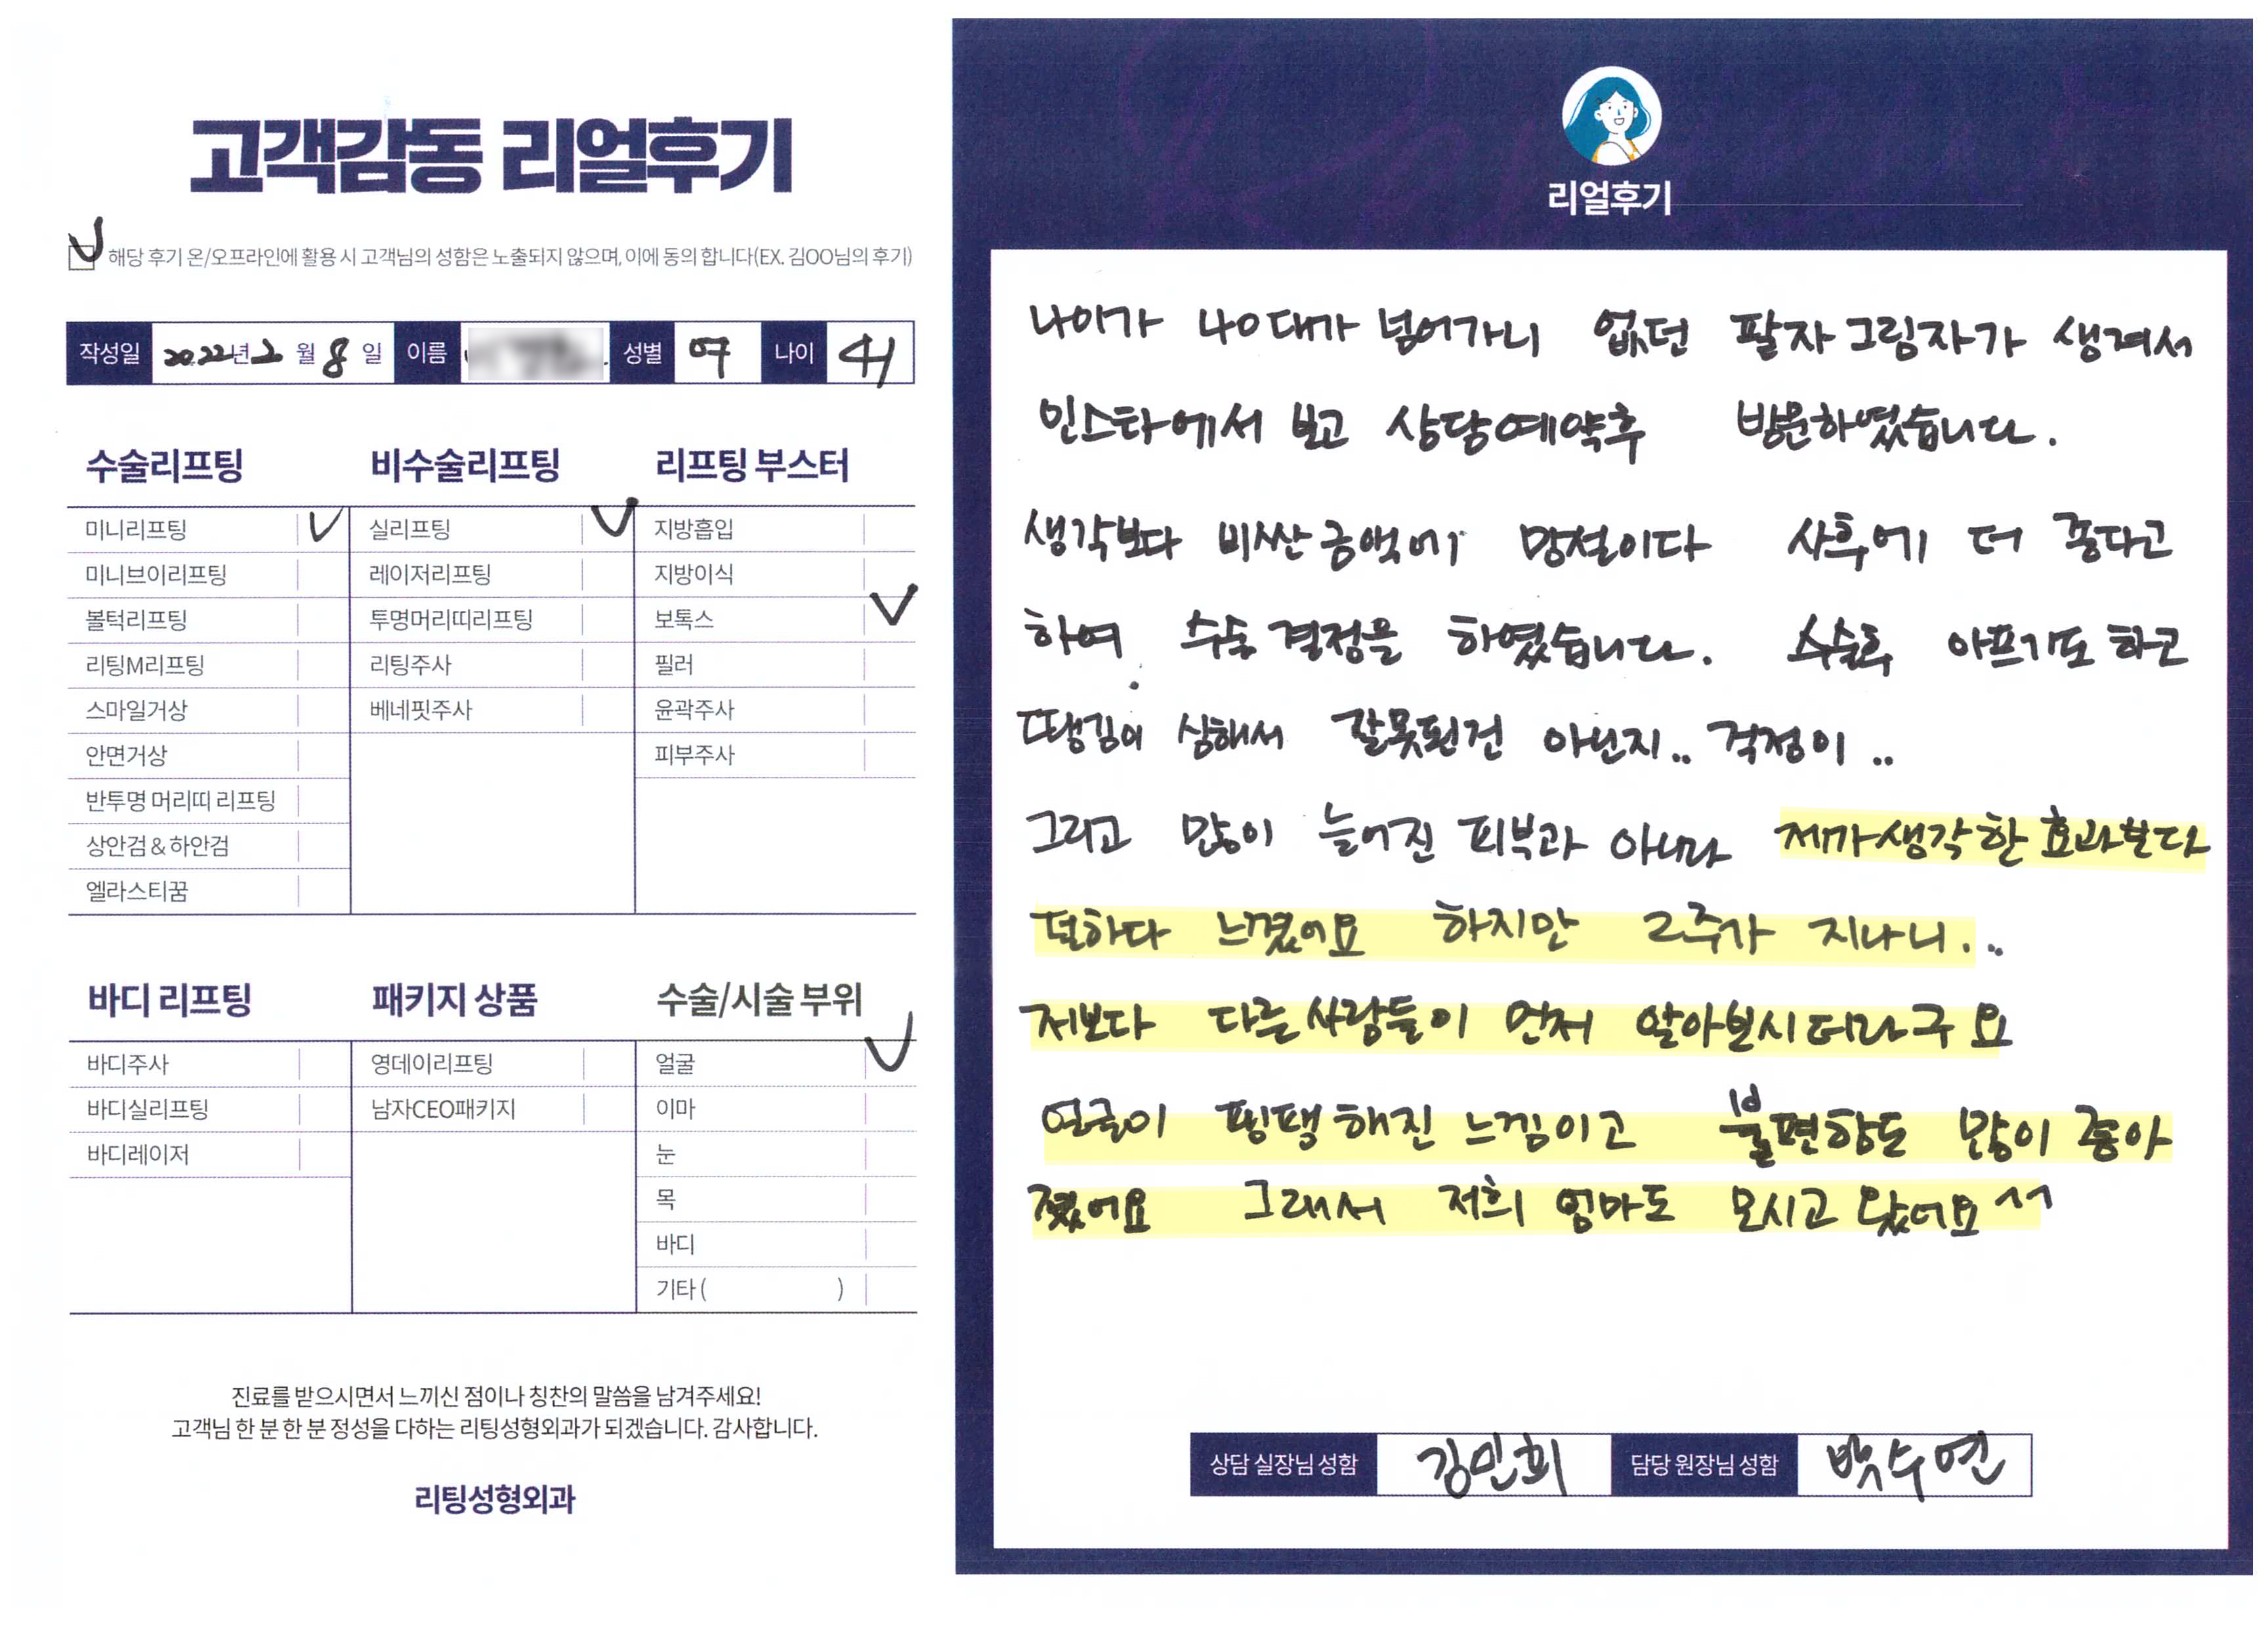 고객감동 리얼후기
해당 후기 온/오프라인에 활용 시 고객님의 성함은 노출되지 않으며, 이에 동의 합니다(EX. 김OO님의 후기)
작성일 2022년 2월 8일 이름 성별 여 나이 41
수술리프팅
미니리프팅
미니브이리프팅
볼턱리프팅
리팅M리프팅
스마일거상
안면거상
반투명 머리띠 리프팅
상안검 & 하안검
엘라스티꿈
비수술리프팅
실리프팅
레이저리프팅
투명머리띠리프팅
리팅주사
베네핏주사
리프팅 부스터
지방흡입
지방이식
보톡스
필러
윤곽주사
피부주사
바디 리프팅
바디주사
바디실리프팅
바디레이저
패키지 상품
영데이리프팅
남자CEO패키지
수술/시술 부위
얼굴
이마
눈
목
바디
기타 ( )
진료를 받으시면서 느끼신 점이나 칭찬의 말씀을 남겨주세요!
고객님 한 분 한 분 정성을 다하는 리팅성형외과가 되겠습니다. 감사합니다.
리팅성형외과
리얼후기
나이가 40대가 넘어가니 없던 팔자 그림자가 생겨서
인스타에서 보고 상담예약후 방문하였습니다.
생각보다 비싼 금액에 망설이다 사후에 더 좋다고
하여 수술 결정을 하였습니다. 수술후 아프기도 하고
땡김이 심해서 잘못된건 아닌지.. 걱정이..
그리고 많이 늘어진 피부과 아니라 제가 생각한 효과보다
덜하다 느꼈어요 하지만 2주가 지나니...
저보다 다른사람들이 먼저 알아보시더라구요
얼굴이 핑팽해진 느낌이고 불편함도 많이 좋아
졌어요 그래서 저희 엄마도 모시고 왔어요 ^^
상담 실장님 성함 김민희 담당 원장님 성함 박수연